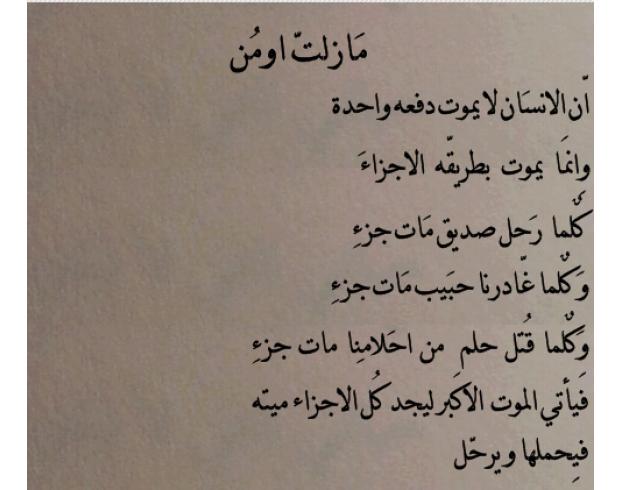 مَازلتّ اومُن
اّن الانسَان لا يموت دفعه واحدة
وانمَا يموت بطريقّه الاجزاءَ
كلٌما رَحل صديق مَات جزءِ
وَكلٌما غّادرنا حبَيب مَات جزءِ
وَكلٌما قُتل حلم من احَلامنِا مات جزءِ
فَيأتي الموت الاكَبر ليجد كُل الاجزاء ميته
فيِحملها ويرحّل